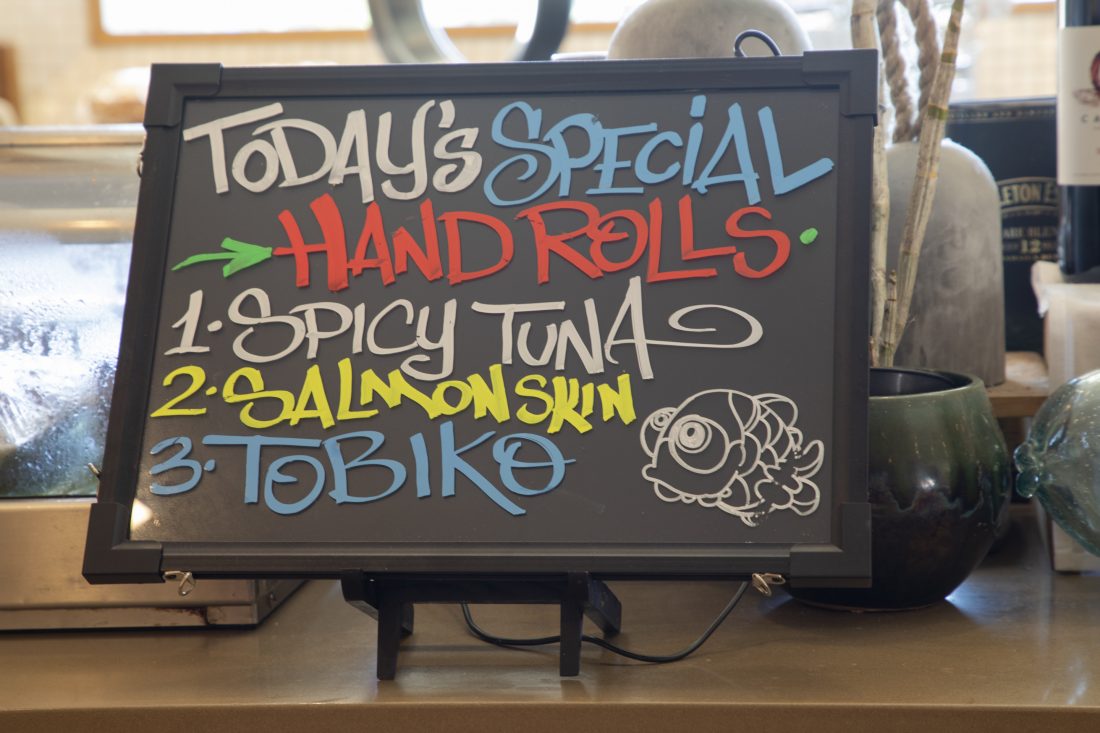 TODAY'S SPECIAL
HAND ROLLS
1. SPICY TUNA
2. SALMON SKIN
3. TOBIKO
LETON
12
CA